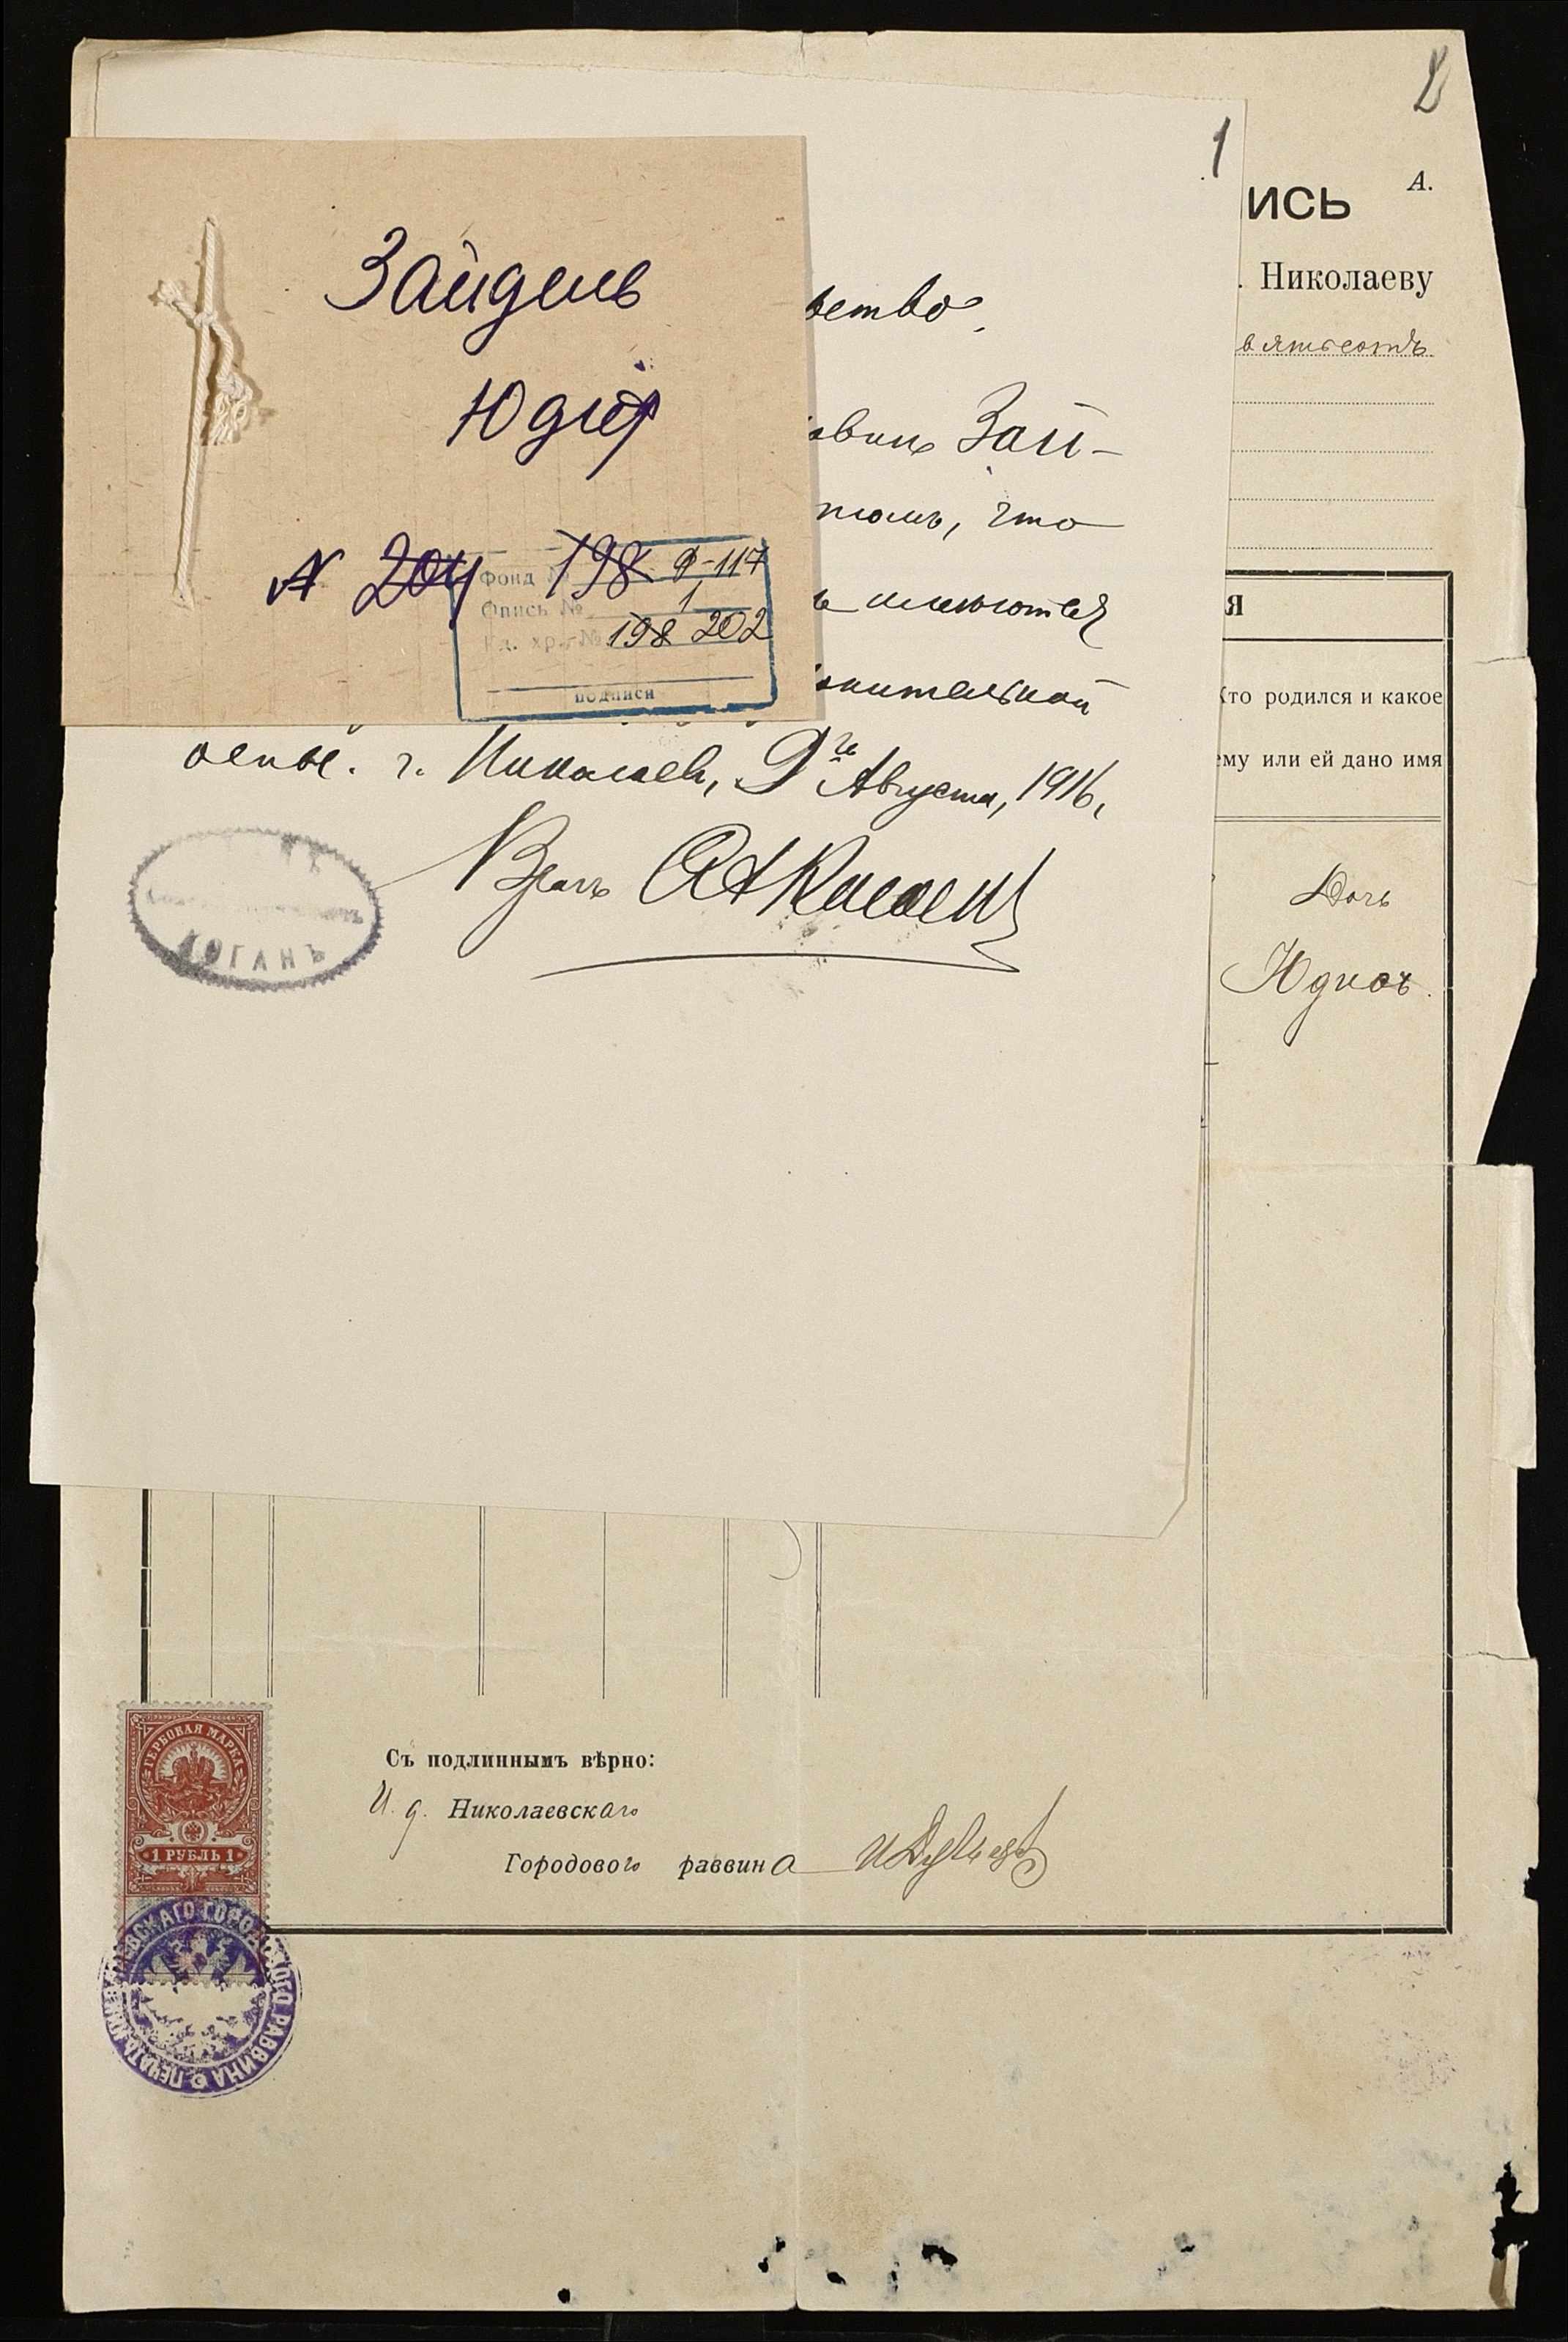 2
А.
ИСЬ
Николаеву
вятьсотъ
1
Зайдель
Юдиф
№ 204 198 Ф-117
Фонд №
Опись № 1
Ед. хр. № 198 202
подписи
ьство.
Зай-
что
имеются
ительной
оспы. г. Николаев, 9го Августа, 1916,
Врачъ
КОГАНЪ
Я
Кто родился и какое
ему или ей дано имя
Дочь
Юдиөь.
ГЕРБОВАЯ МАРКА
1 РУБЛЬ 1
Съ подлиннымъ вѣрно:
И. д. Николаевскаго
Городового раввина
ПЕЧАТЬ НИКОЛАЕВСКАГО ГОРОДСКОГО РАВВИНА